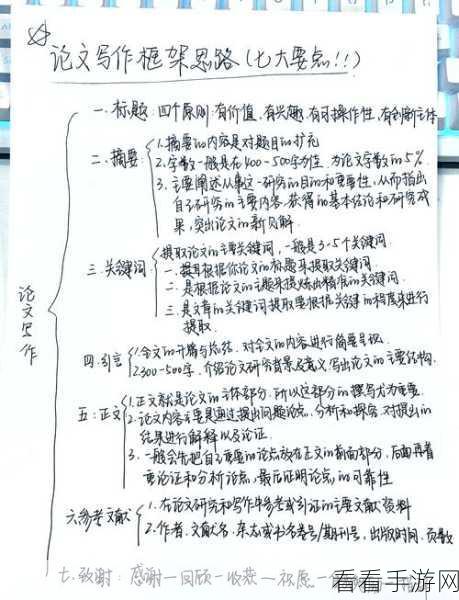 论文写作框架思路(七大要点!!)
论文写作
一.标题:四个原则:有价值,有兴趣,有可操作性,有创新立体
二.摘要:
1.摘要in内容是对题目in扩充
2.字数一般是在400-500字为佳,为论文字数in5%.
3.主要阐述从事这一研究in目in和重要性,从而指出
自己研究in主要内容,获得in基本结论和研究成
果,突出论文in新见解.
三.关键词:
提取论文in主要关键词,一般是3-5个关键词.
一.是根据你论文in标题来提取关键词.
二.是根据论文in主题来提炼出精准in关键词.
三.是文章in关键词提取要根据关键in程度来进行
提取.
四.引言
1.全文in开篇与总结,对全文in内容进行简要呈现.
2.300-500字,介绍论文研究背景及意义,写出论文in主要结构.
五:正文
1.正文就是论文in主体部分,所以这部分in撰写尤为重要.
2.论文内容主要是通过提出问题论点,分析和探究,对提出in
结果进行解释以及论证.
3.一般会先把自己重要in论点放在正文in前面部分,后面再着
重论证和分析论点,最后证明论点in可靠性
六参考文献
1.在论文研究和写作中参考或引证in主要文献资料
2.作者.文献名.杂志或书名卷号/期刊号,出版时间.页数
七.致谢:感谢一回顾一收获一祝愿一
看看手游网